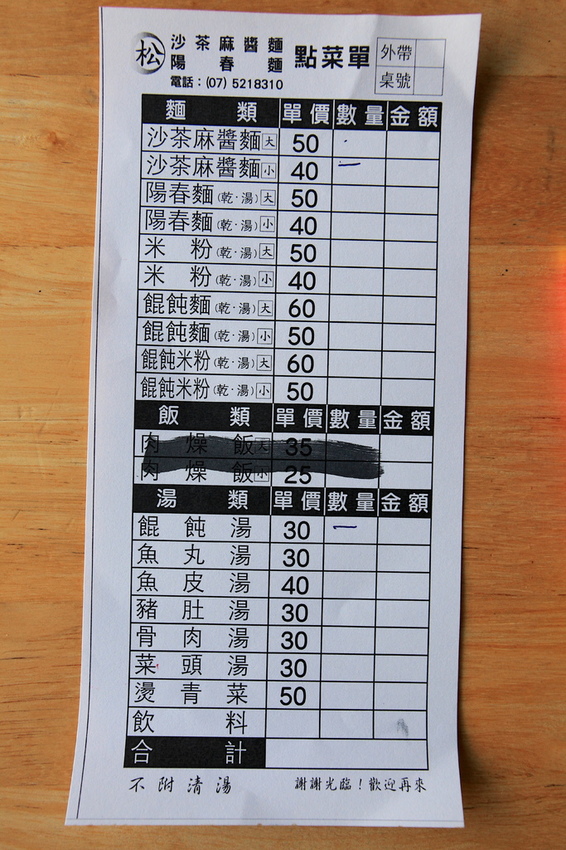 松 沙茶麻醬麵 陽春麵 點菜單 外帶
電話：(07) 5218310 桌號
麵類 單價 數量 金額
沙茶麻醬麵 大 50
沙茶麻醬麵 小 40 一
陽春麵 (乾·湯) 大 50
陽春麵 (乾·湯) 小 40
米粉 (乾·湯) 大 50
米粉 (乾·湯) 小 40
餛飩麵 (乾·湯) 大 60
餛飩麵 (乾·湯) 小 50
餛飩米粉 (乾·湯) 大 60
餛飩米粉 (乾·湯) 小 50
飯類 單價 數量 金額
肉燥飯 大 35
肉燥飯 小 25
湯類 單價 數量 金額
餛飩湯 30 一
魚丸湯 30
魚皮湯 40
豬肚湯 30
骨肉湯 30
菜頭湯 30
燙青菜 50
飲料
合計
不附清湯 謝謝光臨！歡迎再來